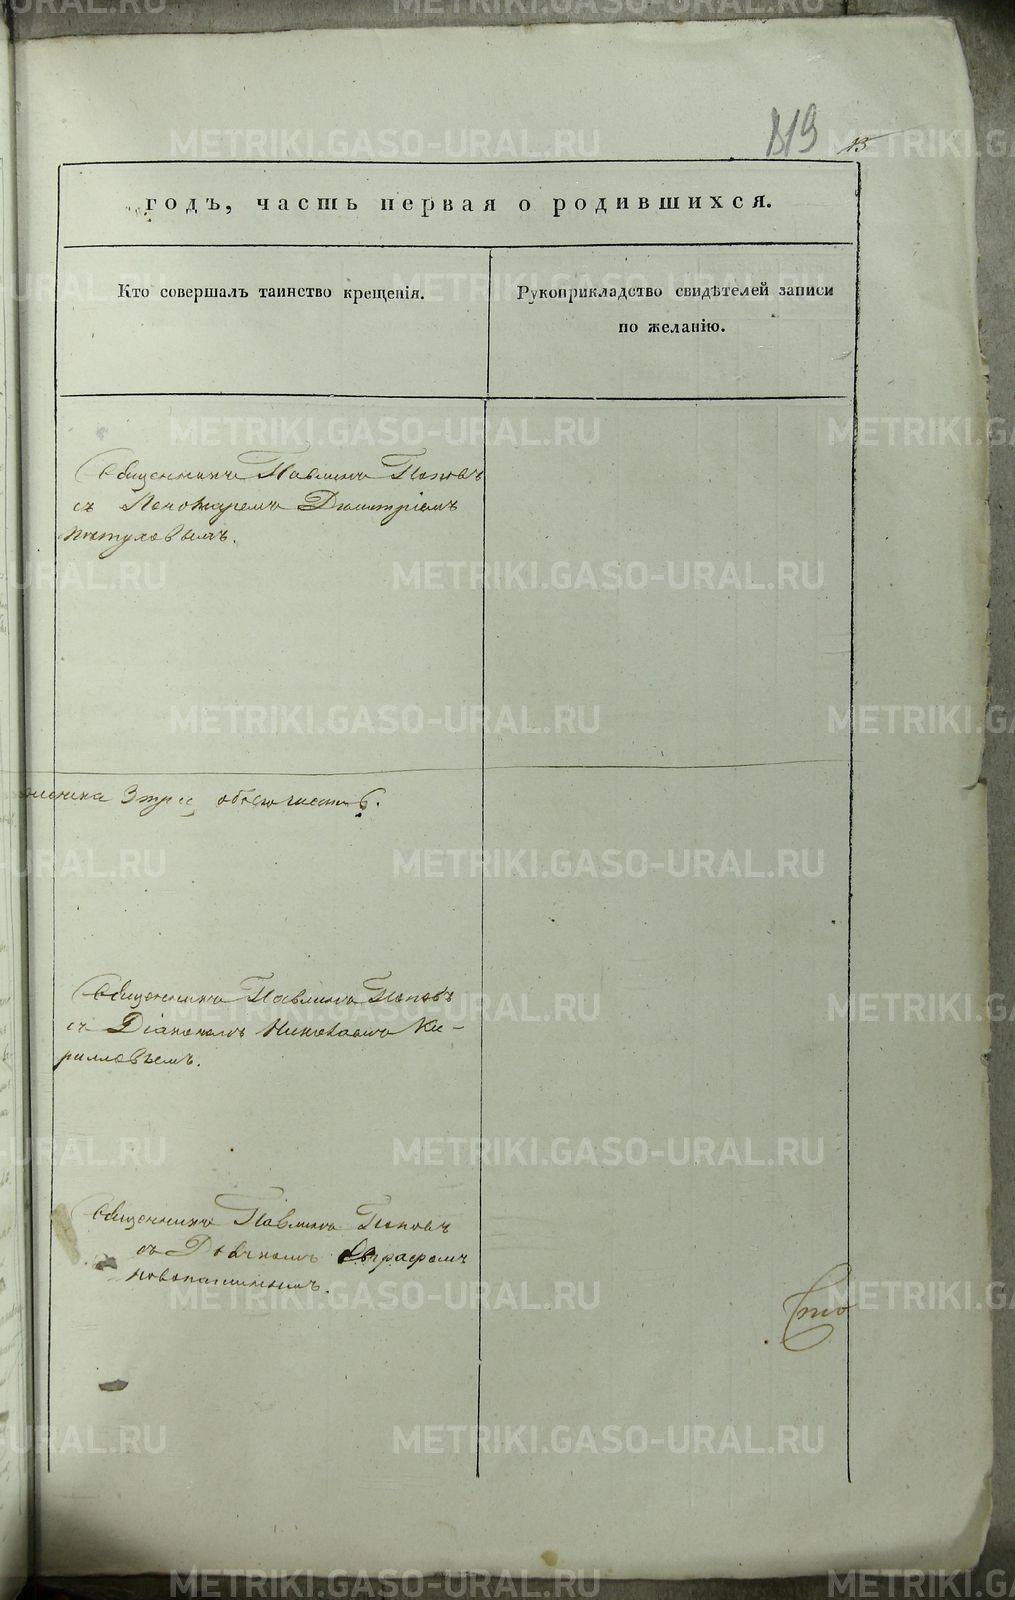 819 13
годъ, часть первая о родившихся.
Кто совершалъ таинство крещенія.
Рукоприкладство свидѣтелей записи
по желанію.
Священникъ Павлинъ Поповъ
съ Пономаремъ Димитріемъ
Пстуховымъ.
женска 3 обоего 6.
Священникъ Павлинъ Поповъ
съ Діакономъ Николаемъ Ки-
рилловымъ.
Священникъ Павлинъ Поповъ
съ Дьячкомъ Евграфомъ
Новопашинымъ.
METRIKI.GASO-URAL.RU